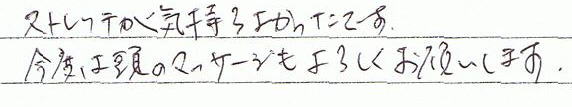 ストレッチが気持ちよかったです.
今度は頭のマッサージもよろしくお願いします.